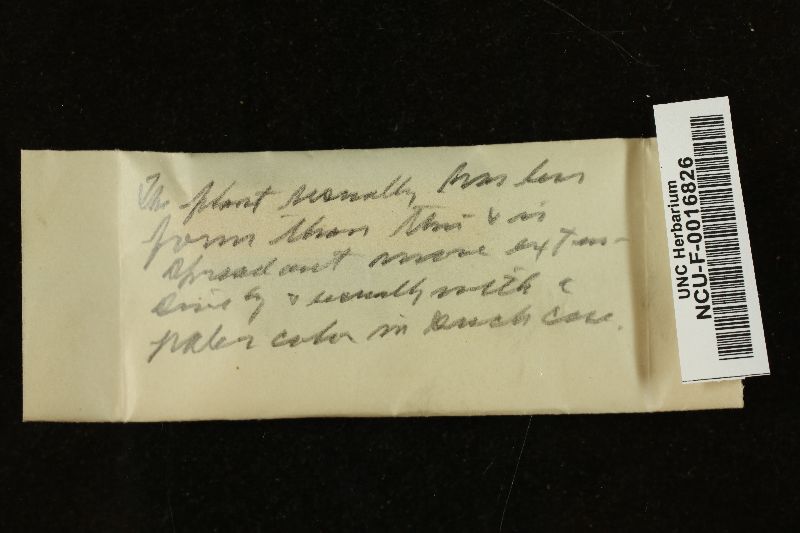 The plant usually has less
form than this & is
spread out more exten-
sively & usually with a
paler color in such case.
UNC Herbarium
NCU-F-0016826